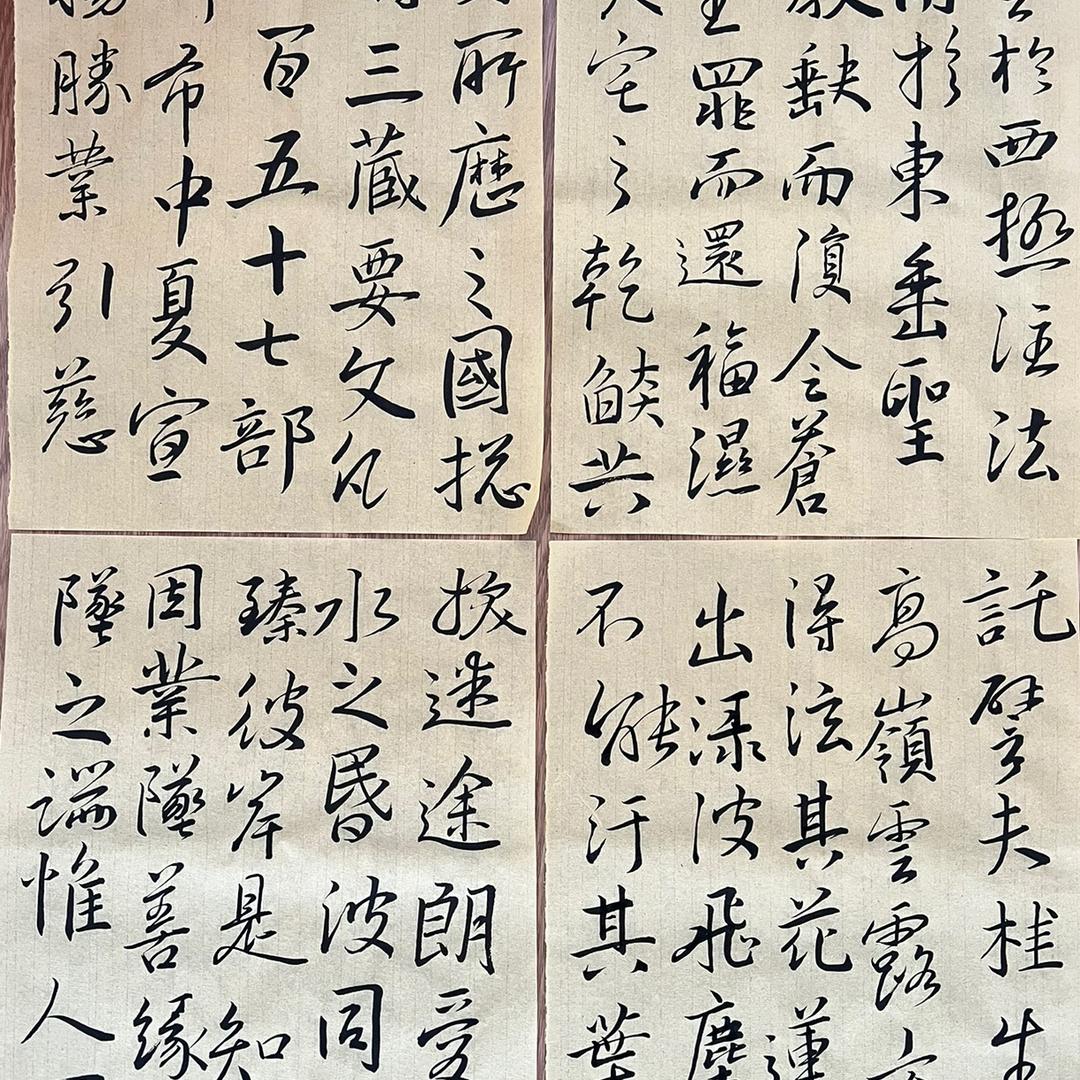 所歷之國揔
三藏要文凡
百五十七部
布中夏宣
勝業引慈
於西極注法
於東垂聖
教缺而復全蒼
罪而還福濕
宅之乾焰共
拔迷途朗愛
水之昬波同
臻彼岸是知
因業墜善緣
墜之端惟人
託譬夫桂生
高嶺雲露
得泫其花蓮
出淥波飛塵
不能汙其葉